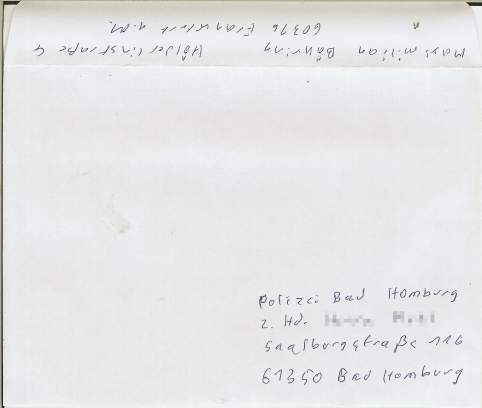 Maximilian Bähring Hölderlinstraße 4
60316 Frankfurt a.M.
Polizei Bad Homburg
z. Hd.
Saalburgstraße 116
61350 Bad Homburg